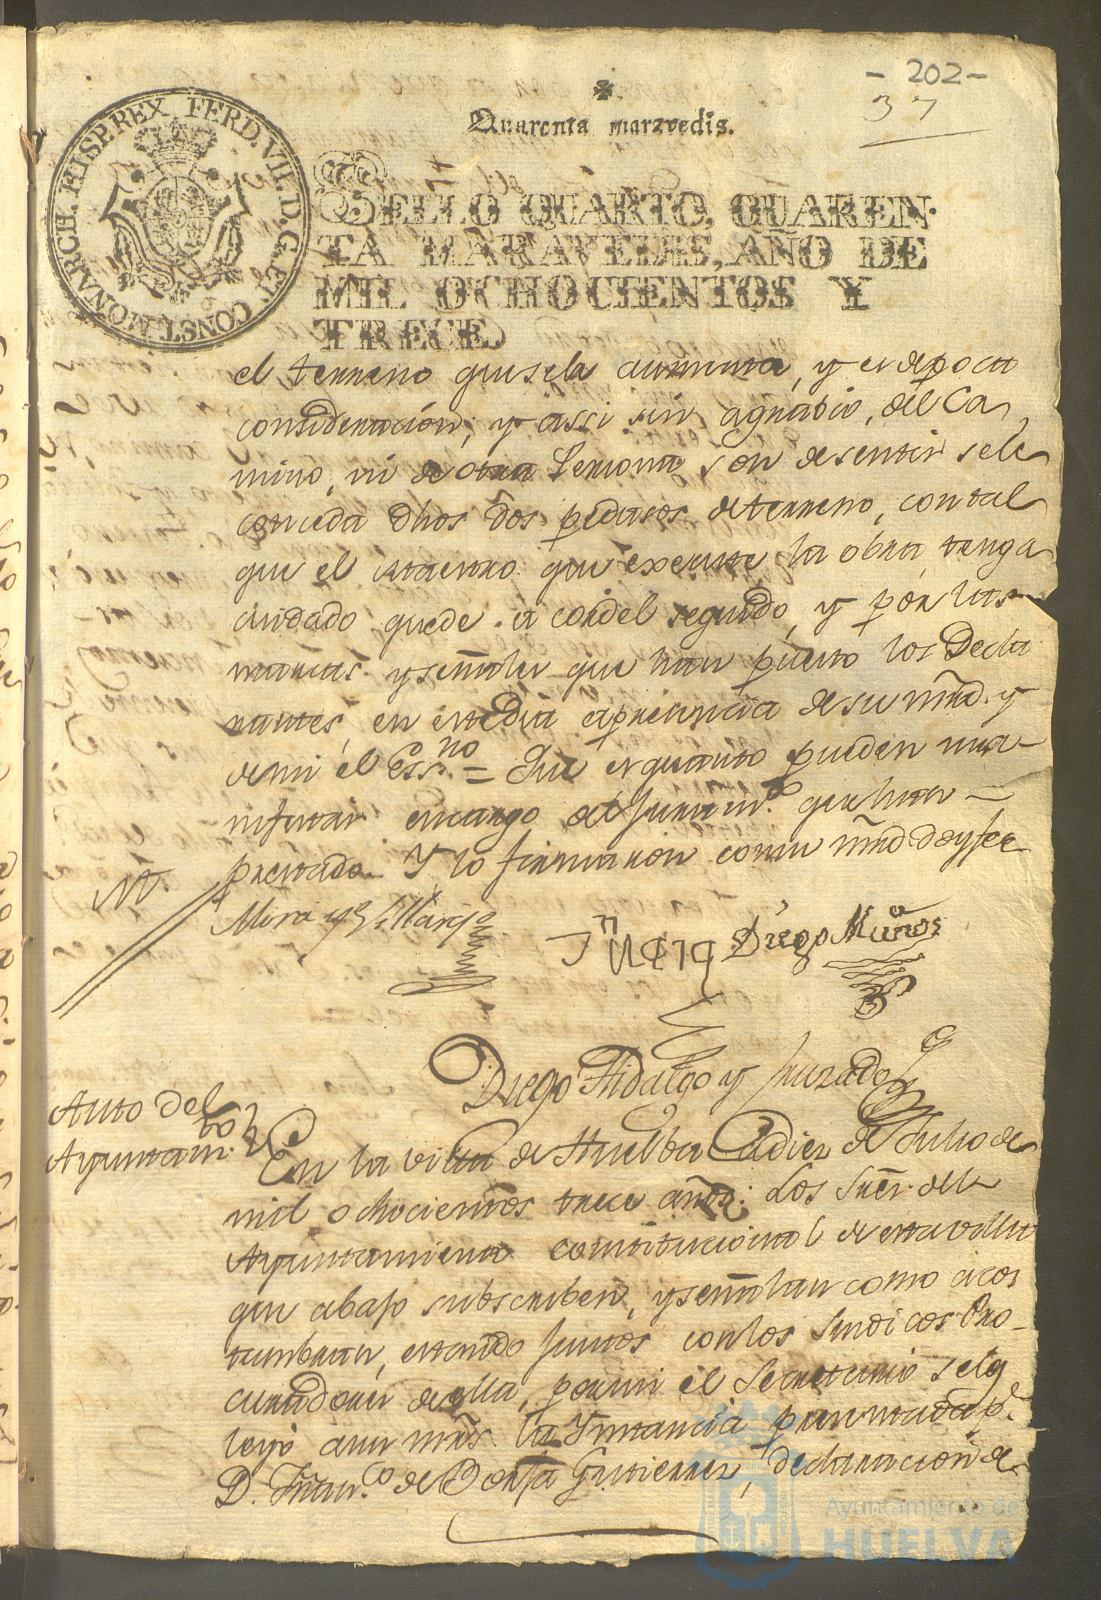 - 202 -
37
Quarenta marzvedis.
FERD. VII. D. G. ET CONST. MONARCH. HISP. REX
SELLO QUARTO, QUAREN-
TA MARAVEDIS, AÑO DE
MIL OCHOCIENTOS Y
TRECE
el terreno que sele aumenta, y es de poca
consideracion, y assi sin agrabio, del Ca
mino, ni de otra Persona, son de sentir sele
conceda dhos dos pedasos de terreno, con tal
que el Maestro que execute la obra, tenga
cuidado quede a cordel seguido, y por las
marcas y señales que han puesto los Decla
rantes, en este dia a presencia de su mrd. y
de mi el Essno = Que es quanto pueden ma-
nifestar en cargo del Juramto. que han
prestado. Y lo firmaron con su mrd doy fee
Mora y Villarejo
Diego Muños
Diego Hidalgo y Jurado
Auto del
Ayuntamto.
En la villa de Huelba a diez de Julio de
mil ochocientos trece años: Los Sres. del
Ayuntamiento constitucional de esta villa
que abajo subscriben, y señalan como acos
tumbran, estando juntos con los Sindicos Pro-
curadores de ella, por mi el Secretario sele
leyó a sus mrds la Ynstancia presentada pr.
D. Franco. de Borja Gutierrez, declaracion de
Ayuntamiento de
HUELVA